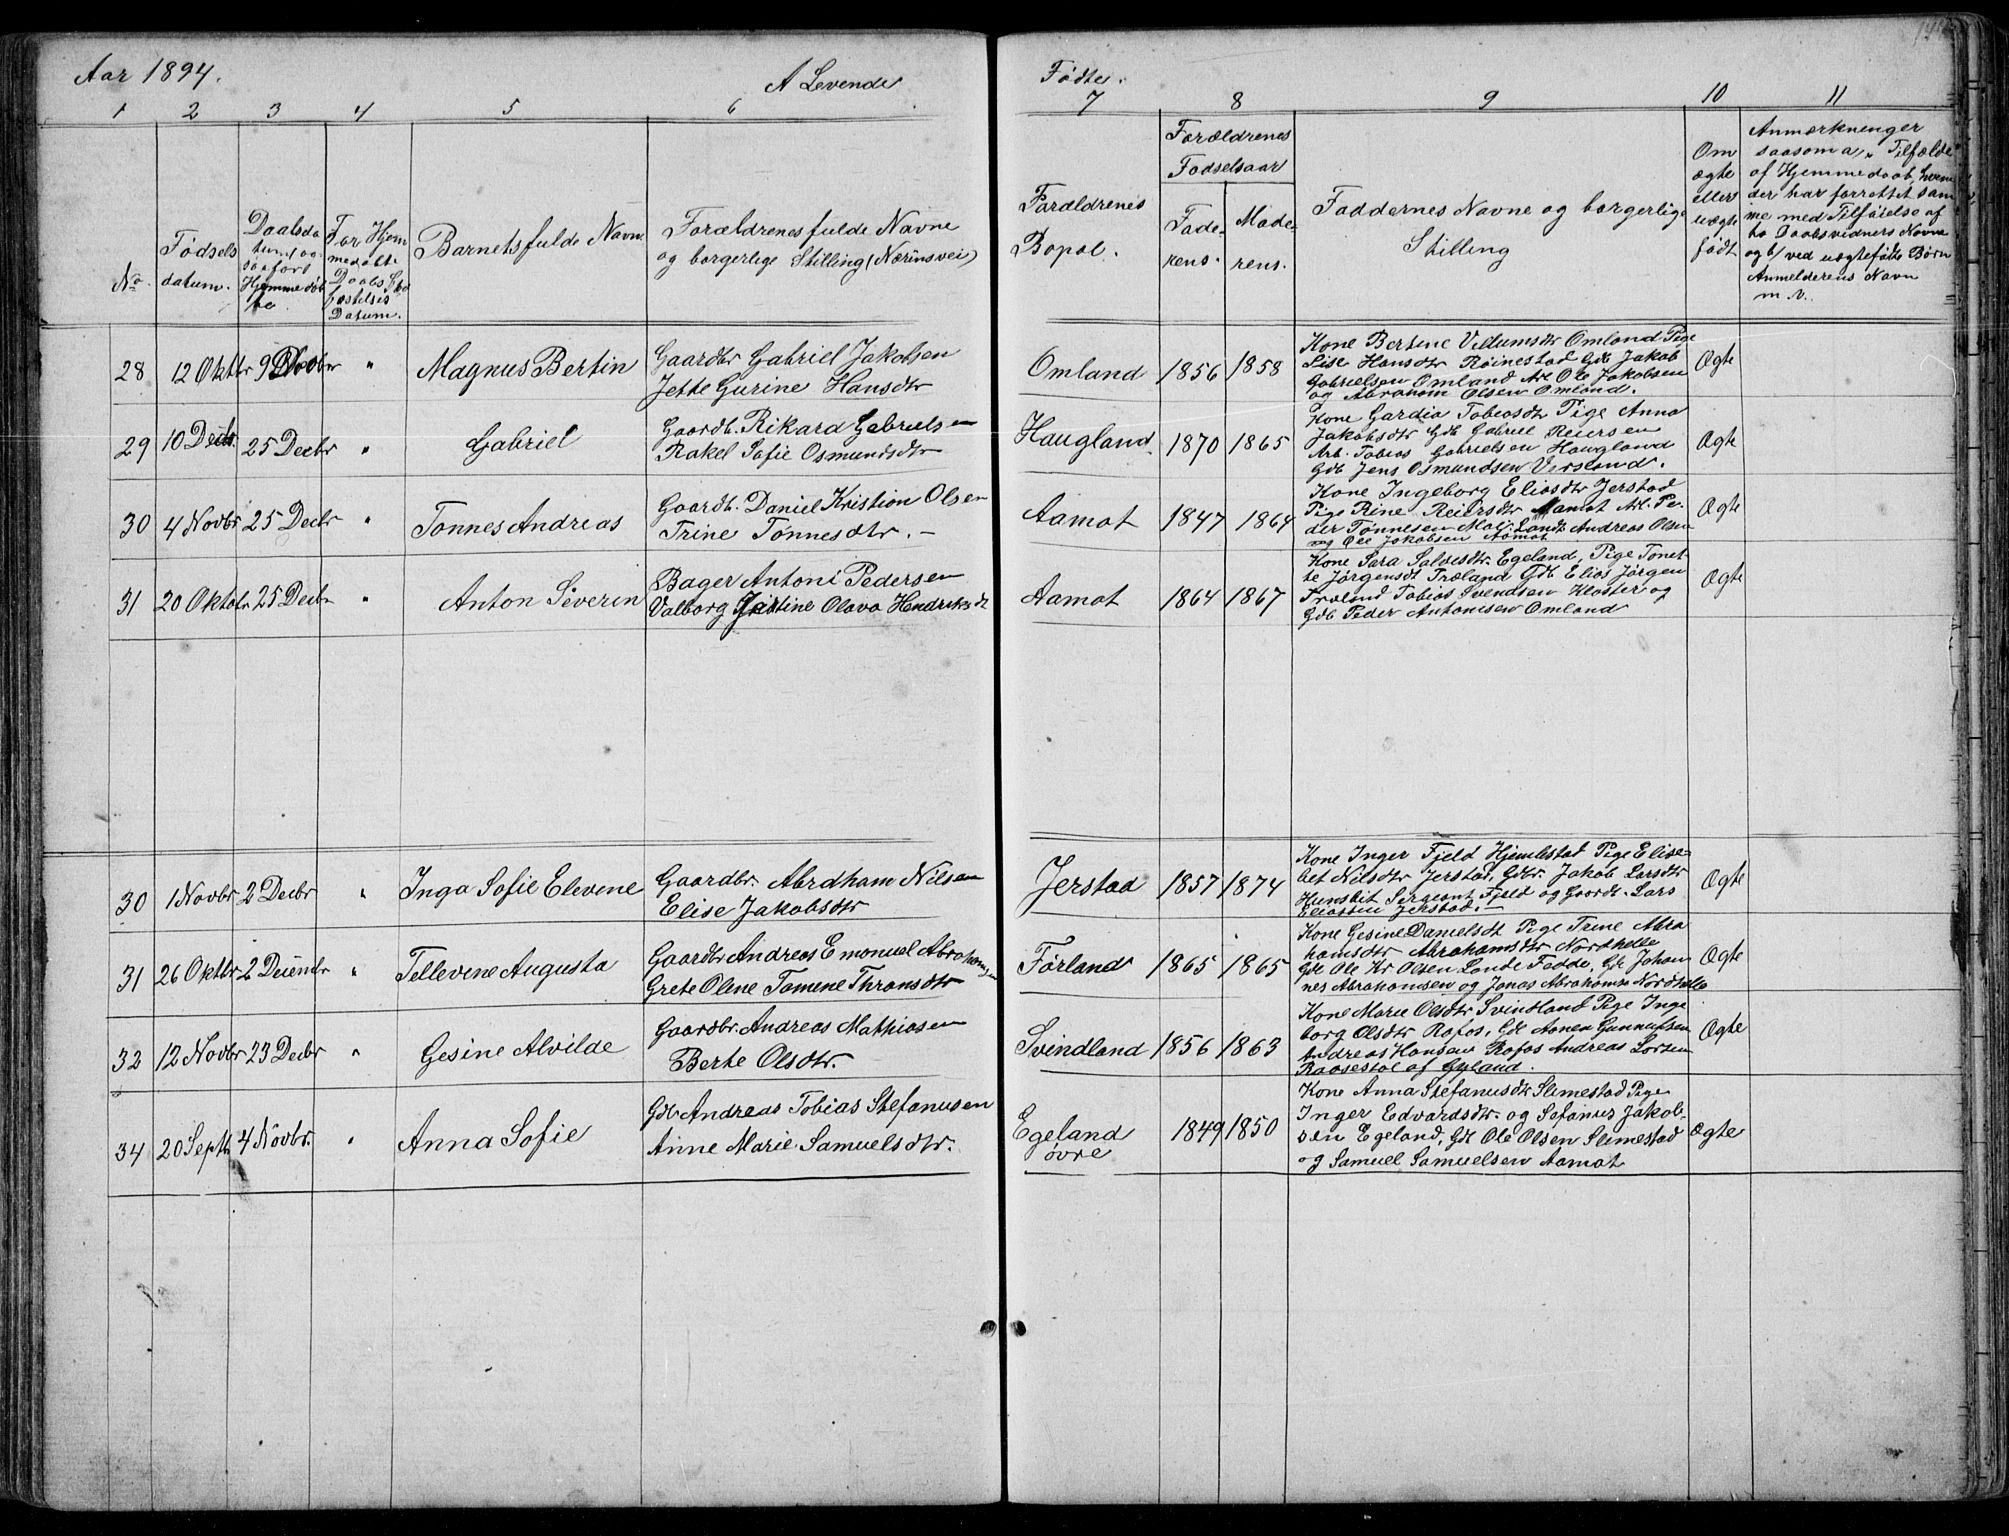 Aar 1894.
A Levende
Fødte.
1 2 3 4 5 6 7 8 9 10 11
No.
Fødsels
datum.
Daabsda
tum og
Hjemmedøb
For Hjem
medøbte
Daabs
Datum.
Barnets fulde Navn
Forældrenes fulde Navne
og borgerlige Stilling (Nærinsvei)
Forældrenes
Bopøl.
Forældrenes
Fødselsaar
Fade-
rens.
Mode-
rens.
Faddernes Navne og borgerlige
Stilling
Om
ægte
eller
uægte
født
Anmærkninger
saasom a, Tilfælde
af Hjemmedaab, hvem
der har forrettet sam
me med Tilføielse af
to Daabsvidners Navne
og b/ ved uægtefødte Børn
Anmelderens Navn
m.v.
28 12 Oktbr 9 " Magnus Bertin
Gaardbr Gabriel Jakobsen
Jette Gurine Hansdtr
Omland 1856 1858
Kone Bertine Villumsdtr Omland Pige
Lise Hansdtr Røinestad Gdb Jakob
Gabrielsen Omland Ole Jakobsen
og Abraham Olsen Omland.
Ægte
29 10 Decbr 25 Decbr " Gabriel
Gaardb. Rikard Gabrielsen
Rakel Sofie Osmundsdtr
Haugland. 1870 1865
Kone Gardia Tobiasdtr Pige Anna
Jakobsdtr Gdb Gabriel Reiersen
Arb. Tobias Gabrielsen Haugland
Gdb Jens Osmundsen Versland.
Ægte
30 4 Novbr 25 Decbr " Tønnes Andreas
Gaardb. Daniel Kristian Olsen
Trine Tønnesdtr. -
Aamot 1847 1864
Kone Ingeborg Eliasdtr Jerstad
Pige Rine Reiersdtr Aamot Pe-
der Tønnesen Andreas Olsen
og Ole Jakobsen Aamot
Ægte
31 20 Oktobr 25 Decbr " Anton Severin
Bager Antoni Pedersen
Valborg Justine Olava Hendriksdt
Aamot 1864 1867
Kone Sara Salvesdtr Egeland, Pige Tonet-
te Jørgensdt Træland Gdb Elias Jørgen
Træland Tobias Svendsen Kloster og
Gdb Peder Antonisen Omland
Ægte
30 1 Novbr 2 Decbr " Inga Sofie Elevene
Gaardbr. Abraham Nilsen
Elise Jakobsdtr
Jerstad 1857 1874
Kone Inger Fjeld Hjemlestad Pige Elise-
bet Nilsdtr Jerstad, Gdbr. Jakob Larsdtr
Hunsbet Sergeant Fjeld og Gaardb. Lars
Eliassen Jerstad. -
Ægte
31 26 Oktbr 2 " Tellevine Augusta
Gaardbr Andreas Emanuel Abrahamsen
Grete Olene Tomene Thronsdtr
Førland 1865 1865
Kone Gesine Danielsdt Pige Trine Abra
hamsdtr Abrahamsdtr Nordhelle
Gdb Ole Kr Olsen Lande Fedde, Gdb Johan
nes Abrahamsen og Jonas Abrahamse Nordhelle
Ægte
32 12 Novbr 23 Decbr " Gesine Alvilde
Gaardbr. Andreas Mathiasen
Berte Olsdtr.
Svindland 1856 1863
Kone Marie Olsdtr Svindland Pige Inge
borg Olsdtr Rafos, Gdb Aanen Gunnufsen
Andreas Hansen Rafos Andreas Larsen
Raasestøl af Gyland.
Ægte
34 20 Septb 4 Novbr. " Anna Sofie
Gdb Andreas Tobias Stefanusen
Anne Marie Samuelsdtr.
Egeland
øvre 1849 1850
Kone Anna Stefanusdtr Slimestad Pige
Inger Edvardsdtr. og Sefanus Jakob-
sen Egeland, Gdb Ole Olsen Slimestad
og Samuel Samuelsen Aamot
Ægte